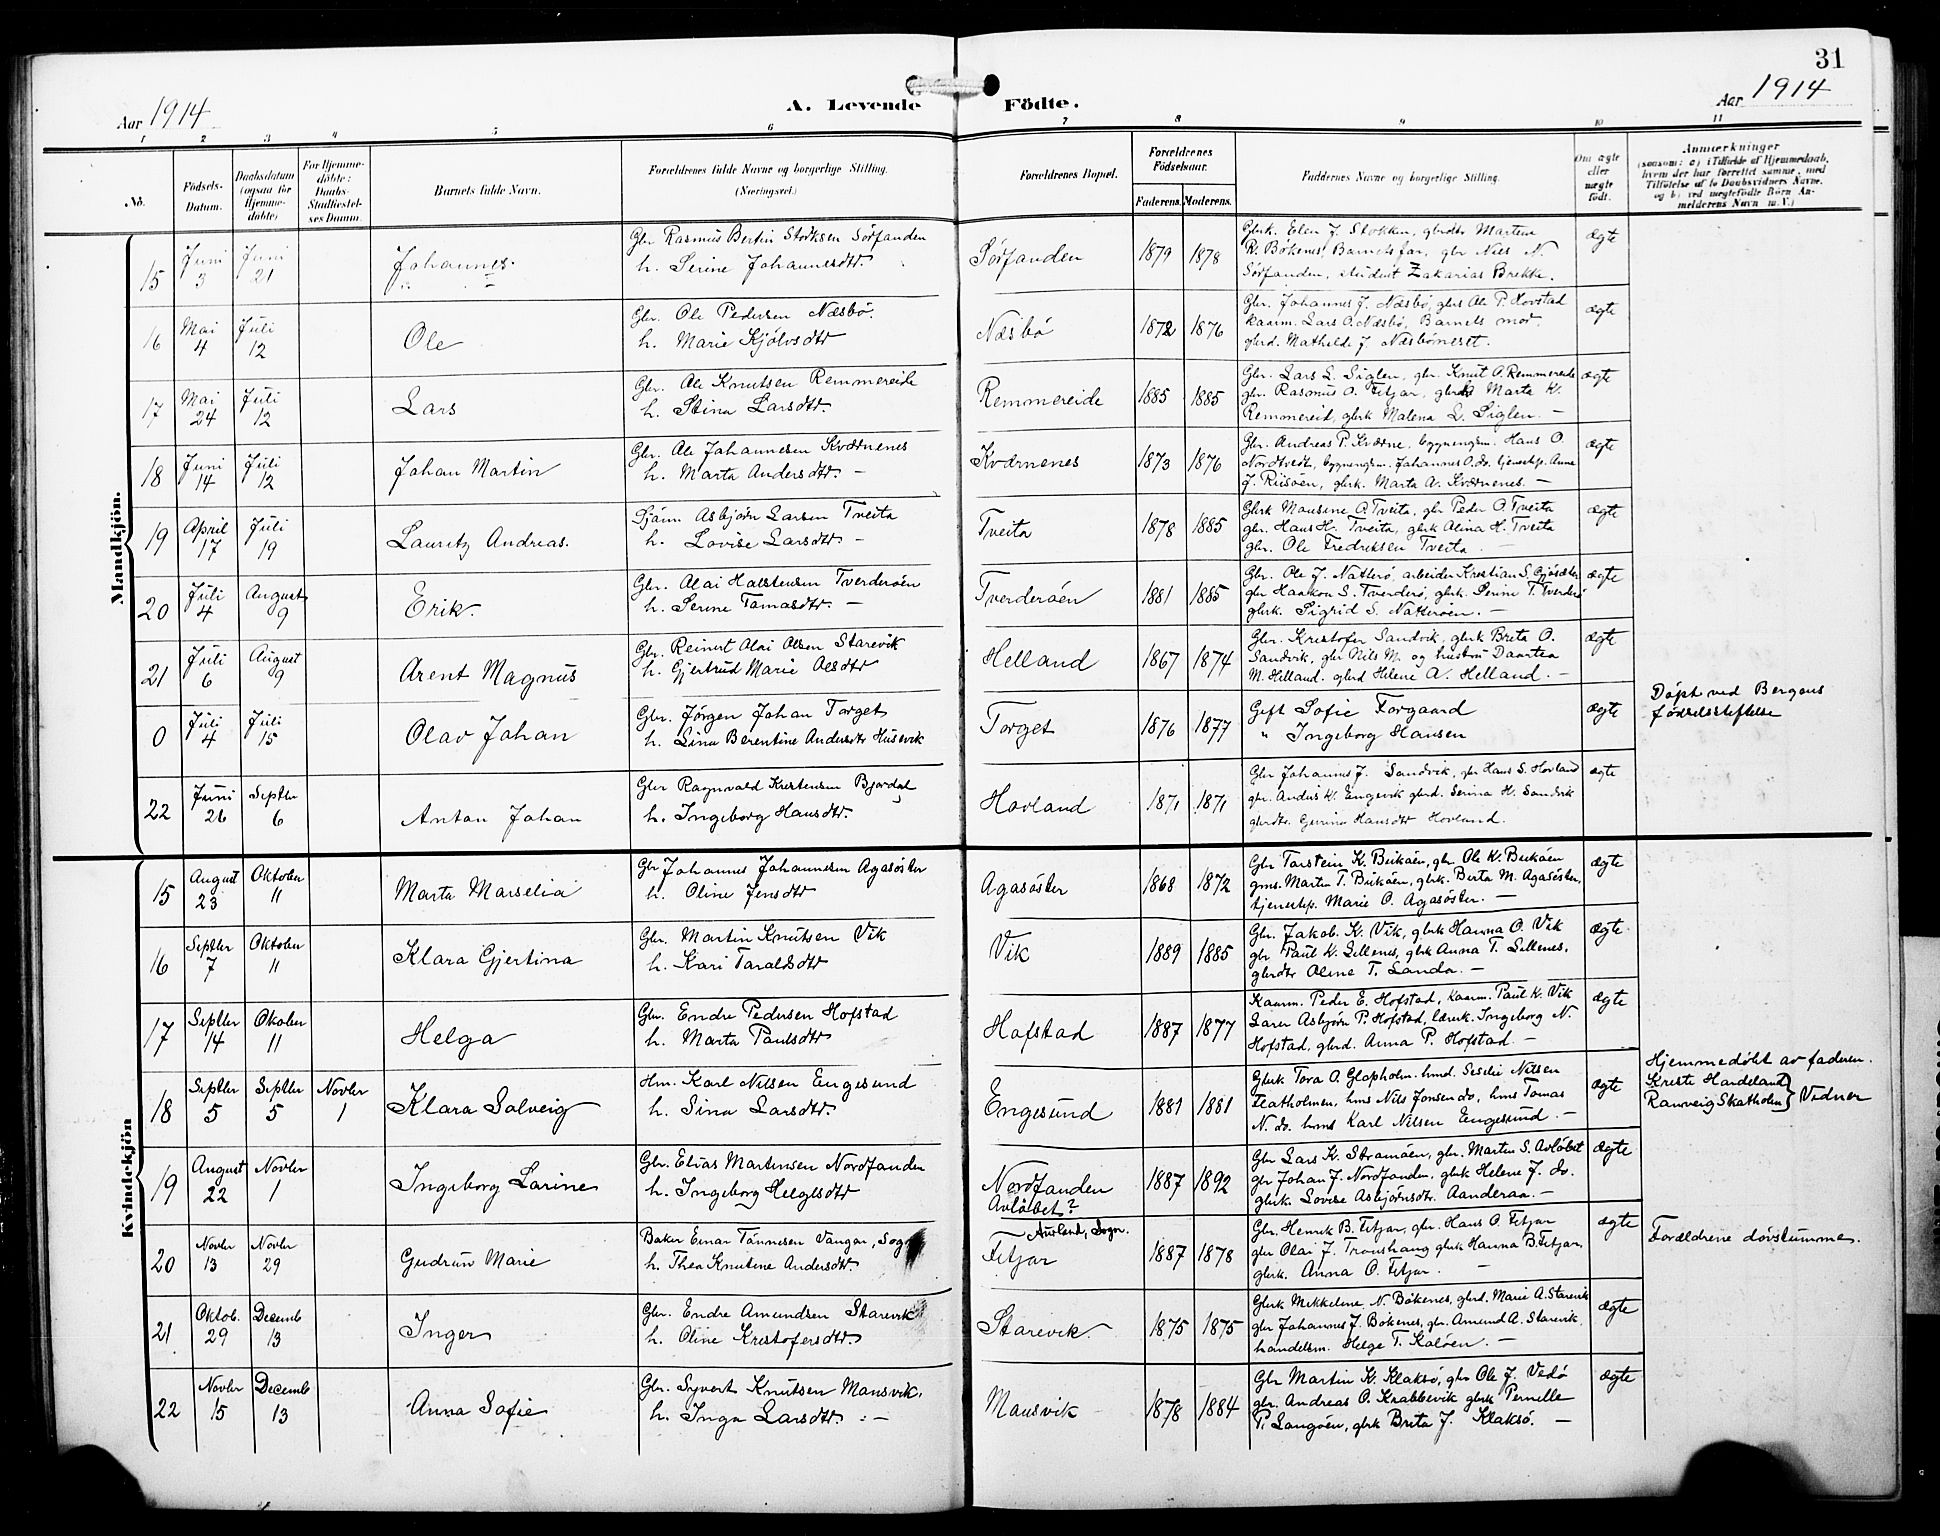 31
Aar 1914
A. Levende Födte.
Aar 1914
1 2 3 4 5 6 7 8 9 10 11
No.
Födsels-Datum.
Daabsdatum (ogsaa for Hjemmedöbte)
For Hjemmedöbte: Daabs-Stadfæstelses Datum.
Barnets fulde Navn.
Forældrenes fulde Navne og borgerlige Stilling. (Næringsvei.)
Forældrenes Bopæl.
Forældrenes Födselsaar.
Faderens. Moderens.
Faddernes Navne og borgerlige Stilling.
Om ægte eller uægte födt.
Anmærkninger
(saasom: a) i Tilfælde af Hjemmedaab, hvem der har forrettet samme, med Tilföielse af to Daabsvidners Navne, og b) ved uægtefödte Börn Anmelderens Navn m. V.)
Mandkjön.
15 Juni 3 Juni 21 Johannes.
Gbr Rasmus Bertin Storksen Sörfanden
h. Serine Johannesdtr.
Sörfanden 1879 1878
Gbrk. Elen J. Stokken, gbrdtr Martina
R. Bökenes, Barnets far, gbr Nils N.
Sörfanden, student Zakarias Brekke.
ægte
16 Mai 4 Juli 12 Ole
Gbr. Ole Pedersen Næsbö.
h. Marie Kjölvsdtr
Næsbö 1872 1876
Gbr. Johannes J. Næsbö, gbrs Ole P. Hovstad
kaarm. Lars O. Næsbö, Barnets mor.
gbrd. Mathilde J. Næsbömeset.
ægte
17 Mai 24 Juli 12 Lars
Gbr. Ole Knutsen Remmereide
h. Stina Larsdtr.
Remmereide 1885 1885
Gbr. Lars L. Siglen, gbr. Knut O. Remmereide
gbr. Rasmus O. Fitjar, gbrd Marta K.
Remmereid, gbrk Malena L. Siglen. —
ægte
18 Juni 14 Juli 12 Johan Martin
Gbr. Ole Johannesen Kværnenes
h. Marta Andersdtr. —
Kværnenes 1873 1876
Gbr. Andreas P. Kværne, bygningsm. Hans O.
Nordtvedt, bygningsm. Johannes O. do. tjenestep. Anne
J. Riisöen, gbrk. Marta A. Kværnenes. —
ægte
19 April 17 Juli 19 Lauritz Andreas.
Sjöm. Asbjörn Larsen Tveita
h. Lovise Larsdtr. —
Tveita 1878 1885
Gbrk Mansine O. Tveita, gbr Peder O. Tveita
gbr. Hans H. Tveita, gbrk Alina H. Tveita
gbr. Ole Fredriksen Tveita. —
ægte
20 Juli 4 August 9 Erik.
Gbr. Olai Halstensen Tverderöen
h. Serine Tomasdtr. —
Tverderöen 1881 1885
Gbr. Ole J. Natterö, arbeider Kristian S. Gjösæter
gbr Haakon S. Tverderö, gbrk. Serine T. Tverderö
gbrk. Sigrid S. Natteröen. —
ægte
21 Juli 6 August 9 Arent Magnus
Gbr. Reinert Olai Olsen Starevik
h. Gjertrud Marie Olsdtr
Helland 1867 1874
Gbr. Kristofer Sandvik, gbrk Breta O.
Sandvik, gbr Nils M. og hustru Daartea
M. Helland. gbrd Helene A. Helland. —
ægte
0 Juli 4 Juli 15 Olav Johan
Gbr. Jörgen Johan Torget
h. Lina Berentine Andersdtr Husevik
Torget 1876 1877
Gift Sofie Forgaard
" Ingeborg Hansen
ægte
Döpt ved Bergens
födselsstiftelse
22 Juni 26 Septbr 6 Anton Johan
Gbr Ragnvald Kristensen Bjordal
h. Ingeborg Hansdtr.
Hovland 1871 1871
Gbr Johannes J. Sandvik, gbr Hans S. Hovland
gbr. Anders K. Engevik gbrd. Serina H. Sandvik
gbrdtr. Gurina Hansdtr Hovland.
ægte
Kvindekjön
15 August 23 Oktober 11 Marta Marselia
Gbr Johannes Johannesen Agasöster
h. Oline Jensdtr
Agasöster 1868 1872
Gbr Torstein K. Beiköen, gbr. Ole K. Beiköen
gms. Martin T. Beiköen, gbrk. Berta M. Agasöster,
tjenestep. Marie O. Agasöster. —
ægte
16 Septbr 7 Oktober 11 Klara Gjertina
Gbr. Martin Knutsen Vik
h. Kari Taraldsdtr
Vik 1889 1885
Gbr. Jakob K. Vik, gbrk Hanna O. Vik
gbr Paul K. Lillenes, gbrk Anna T. Lillenes,
gbrdtr Oline T. Landa. —
ægte
17 Septbr 14 Oktober 11 Helga
Gbr. Endre Pedersen Hofstad
h. Marta Paulsdtr
Hofstad 1887 1877
Kaarm. Peder E. Hofstad, kaarm. Paul K. Vik
Lærer Asbjörn P. Hofstad, lærerk. Ingeborg N.
Hofstad, gbrd. Anna P. Hofstad. —
ægte
18 Septbr 5 Septbr 5 Novbr 1 Klara Solveig
Hm. Karl Nilsen Engesund
h. Sina Larsdtr.
Engesund 1881 1881
Gbrk Tora O. Glopholm. hmd. Seselie Nilsen
Flatholmen, hms Nils Jonsen do, hms Tomas
N. do. hms Karl Nilsen Engesund. —
ægte
Hjemmedöbt av faderen.
Kreste Handeland
Ranveig Skatholm } Vidner
19 August 22 Novbr 1 Ingeborg Larine
Gbr. Elias Martinsen Nordfanden
h. Ingeborg Helgesdtr
Nordfanden
Avlöbet?
1887 1892
Gbr Lars K. Straumöen, gbr. Martin S. Avlöbet
gbr Johan J. Nordfanden, gbrk Helene J. do.
gbrk. Lovise Asbjörnsdtr. Aanderaa. —
ægte
20 Novbr 13 Novbr 29 Gudrun Marie
Baker Einar Tönnesen Vangen, Sogn
h. Thea Knutine Andersdtr.
Aurland, Sogn.
Fitjar 1887 1878
Gbr. Henrik B. Fitjar, gbr. Hans O. Fitjar
gbr Olai J. Tronshaug gbrk Hanna B. Fitjar,
gbrk. Anna O. Fitjar. —
ægte
Forældrene dövstumme.
21 Oktob. 29 Decemb 13 Inger
Gbr. Endre Amundsen Starevik
h. Oline Kristofersdtr.
Starevik. 1875 1875
Gbrk Mikkeline N. Bökenes, gbrd. Marie A. Starevik
gbr Johannes J. Bökenes, gbr. Amund A. Starevik,
handelsm. Helge T. Kalöen. —
ægte
22 Novbr 15 Decemb 13 Anna Sofie
Gbr. Syvert Knutsen Mansvik,
h. Inga Larsdtr. : —
Mansvik 1878 1884
Gbr Martin K. Klaksö, gbr Ole J. Vedö
gbr. Andreas O. Krabbevik gbrk Pernille
P. Langöen, gbrk Brita J. Klaksö. —
ægte